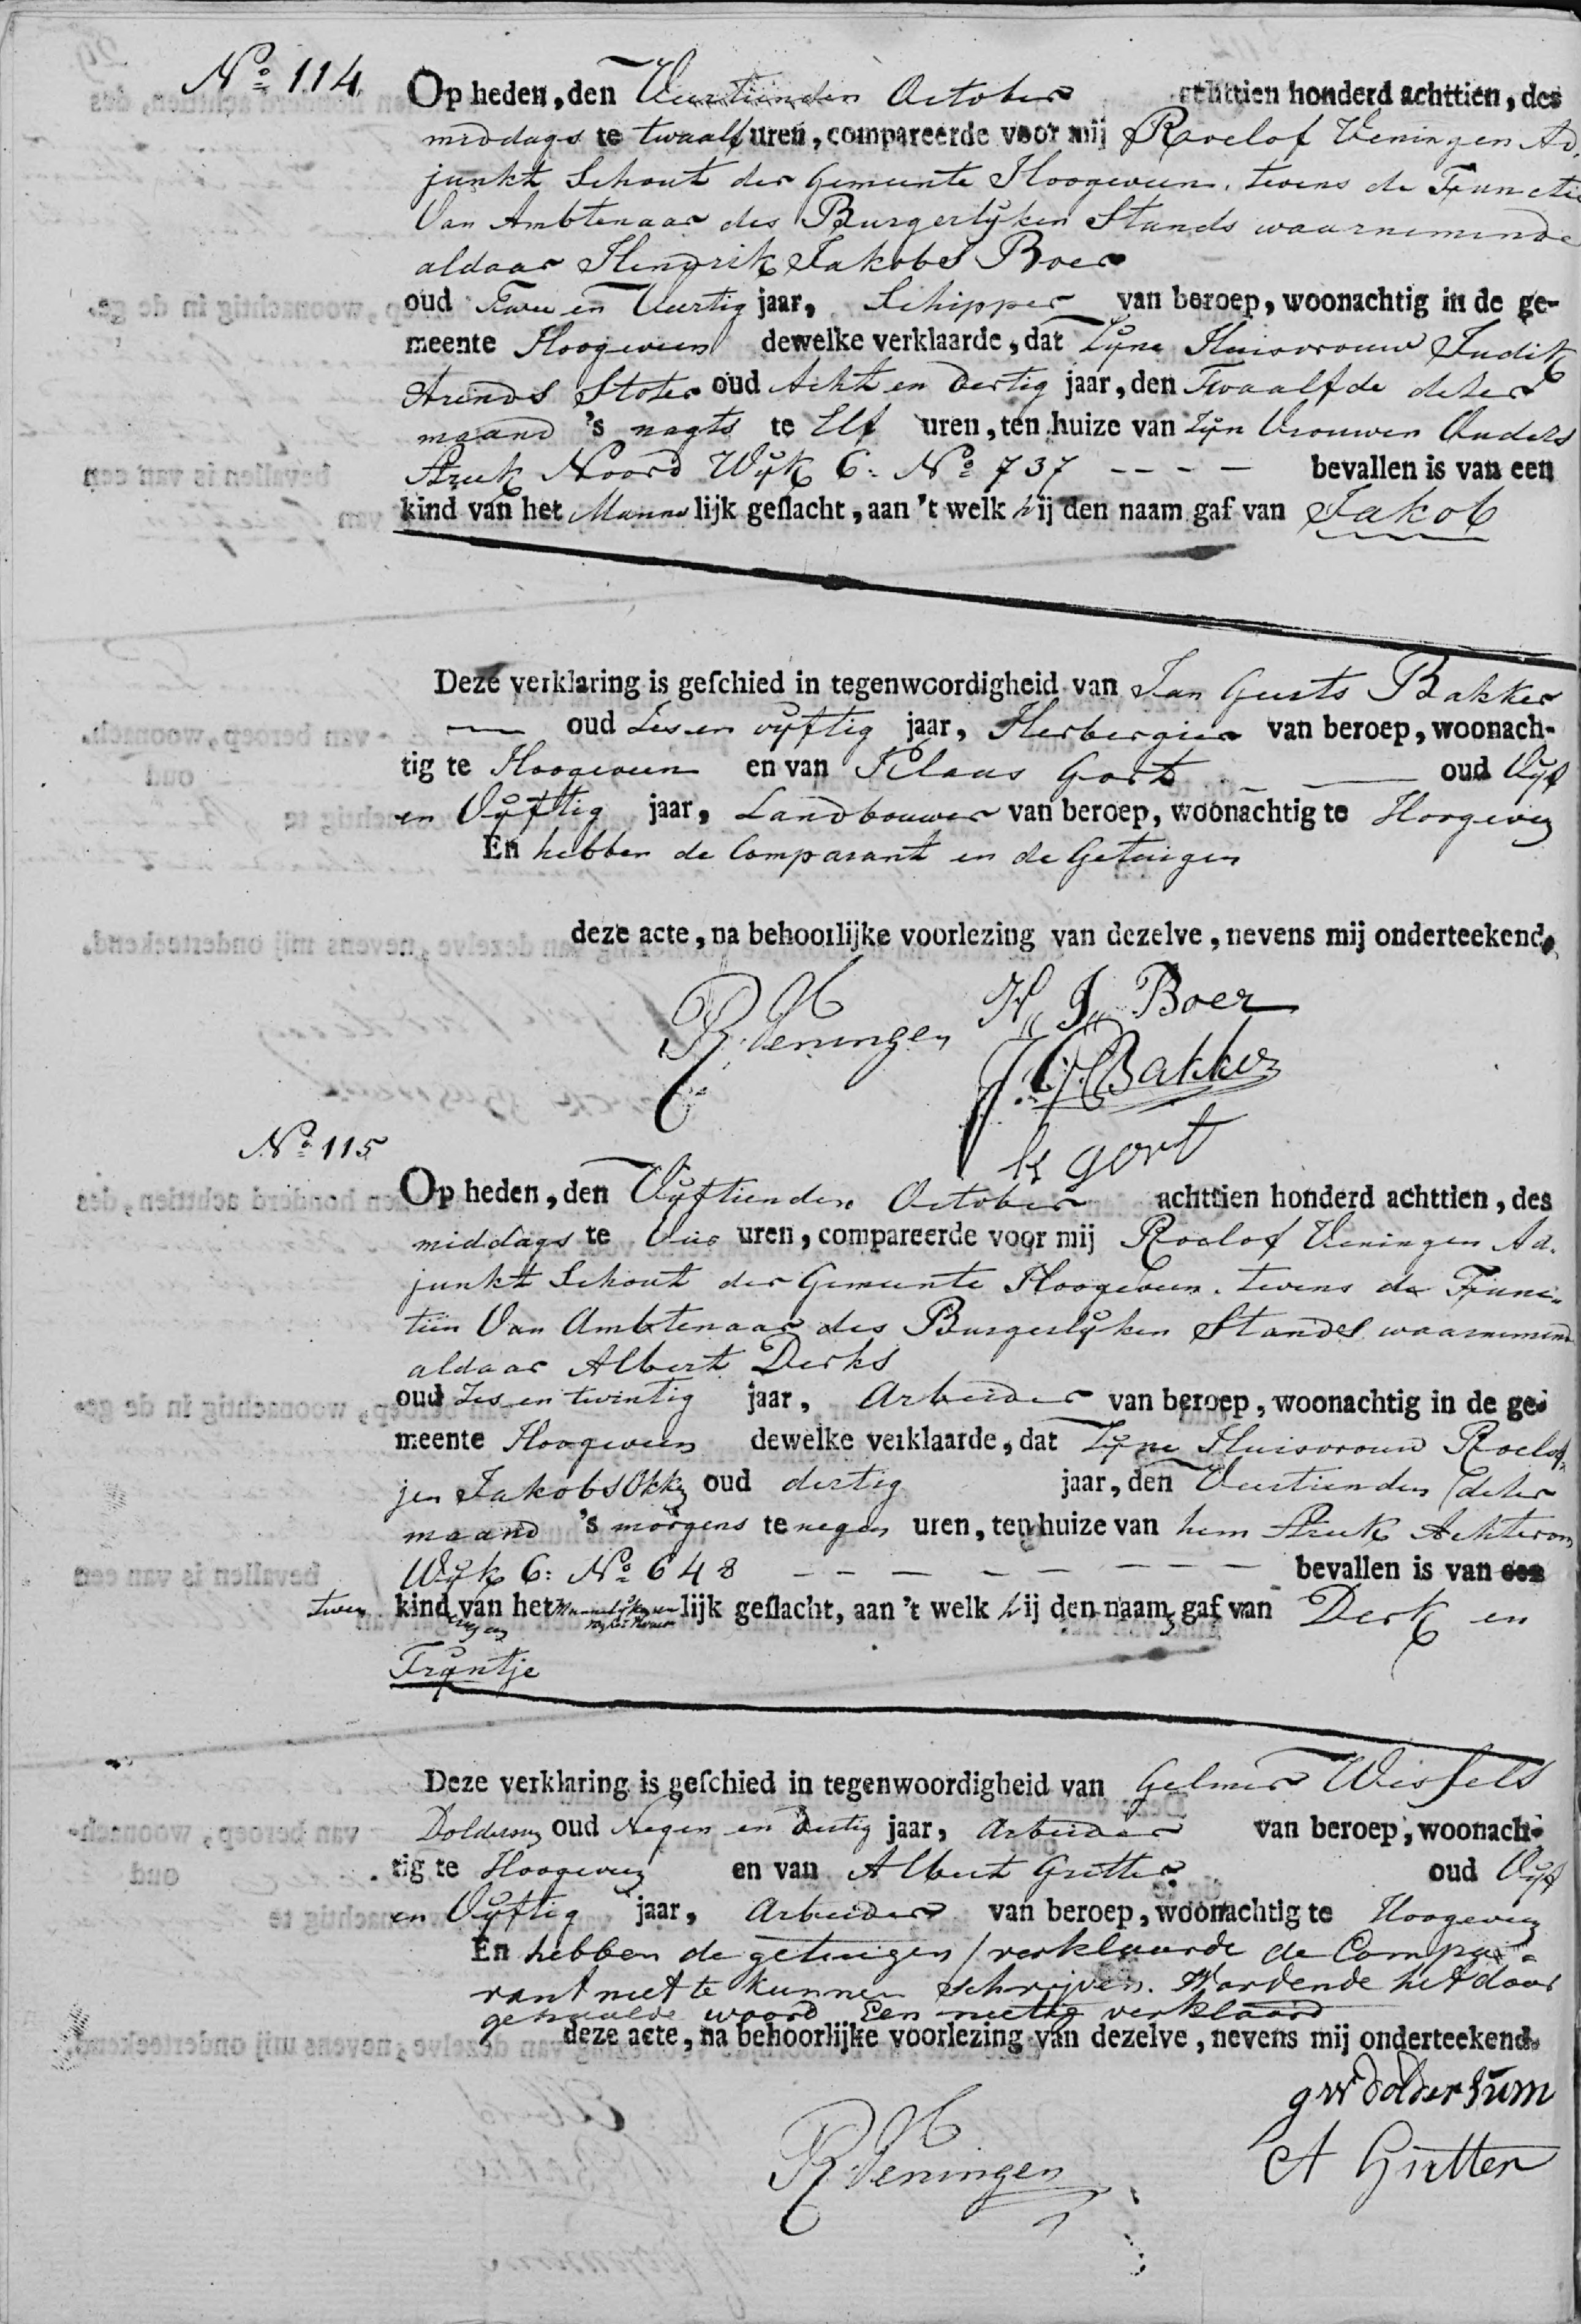 Nº 114
Op heden, den Veertienden October achttien honderd achttien, des
middags te twaalf uren, compareerde voor mij Roelof Veningen Ad-
junkt Schout der Gemeente Hoogeveen, tevens de Functie
Van Ambtenaar des Burgerlijken Stands waarnemende
aldaar Hendrik Jakobs Boer
oud Twee en Veertig jaar, Schipper van beroep, woonachtig in de ge-
meente Hoogeveen dewelke verklaarde, dat Zijne Huisvrouw Judik
Arends Stoter oud Acht en dertig jaar, den Twaalfde dezer
maand 's nagts te Elf uren, ten huize van Zijn Vrouwen Ouders
Streek Noord Wijk 6: Nº 737 - - - - bevallen is van een
kind van het Mannelijk geslacht, aan 't welk hij den naam gaf van Jakob
Deze verklaring is geschied in tegenwoordigheid van Jan Geerts Bakker
oud Zes en vijftig jaar, Herbergier van beroep, woonach-
tig te Hoogeveen en van Klaas Gort oud Vijf
en Vijftig jaar, Landbouwer van beroep, woonachtig te Hoogeveen
En hebben de Comparant en de Getuigen
deze acte, na behoorlijke voorlezing van dezelve, nevens mij onderteekend.
R Veningen H,, J,, Boer
J. G. Bakker
K gort
Nº 115
Op heden, den Vijftienden October achttien honderd achttien, des
middags te Vier uren, compareerde voor mij Roelof Veningen Ad-
junkt Schout der Gemeente Hoogeveen, tevens de Func-
tiën Van Ambtenaar des Burgerlijken Standes waarnemend
aldaar Albert Derks
oud Zes en twintig jaar, Arbeider van beroep, woonachtig in de ge-
meente Hoogeveen dewelke verklaarde, dat Zijne Huisvrouw Roelof-
jen Jakobs Okken oud dertig jaar, den Veertienden dezer
maand 's morgens te negen uren, ten huize van hem Streek Achterom
Wijk 6: Nº 648 - - - - - - - bevallen is van een
twee kind van het Mannelijk en lijk geslacht, aan 't welk hij den naam gaf van Derk en
Trijntje
Deze verklaring is geschied in tegenwoordigheid van Gelmer Wessels
Doldersum oud Negen en Dertig jaar, Arbeider van beroep, woonach-
tig te Hoogeveen en van Albert Gritter oud Vijf
en Vijftig jaar, Arbeider van beroep, woonachtig te Hoogeveen
En hebben de getuigen / verklaarde de Compa-
rant niet te kunnen schrijven. Wordende het door
gehaalde woord Een nietig verklaard
deze acte, na behoorlijke voorlezing van dezelve, nevens mij onderteekend.
g w doldersum
R Veningen A Gritter